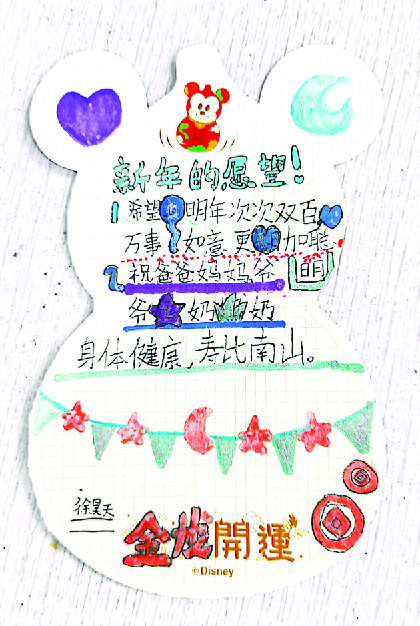 新年的愿望!
1 希望明年次次双百
万事如意更加聪
明
2 祝爸爸妈妈爷
爷奶奶
身体健康,寿比南山。
徐昊天
金龙開運
©Disney